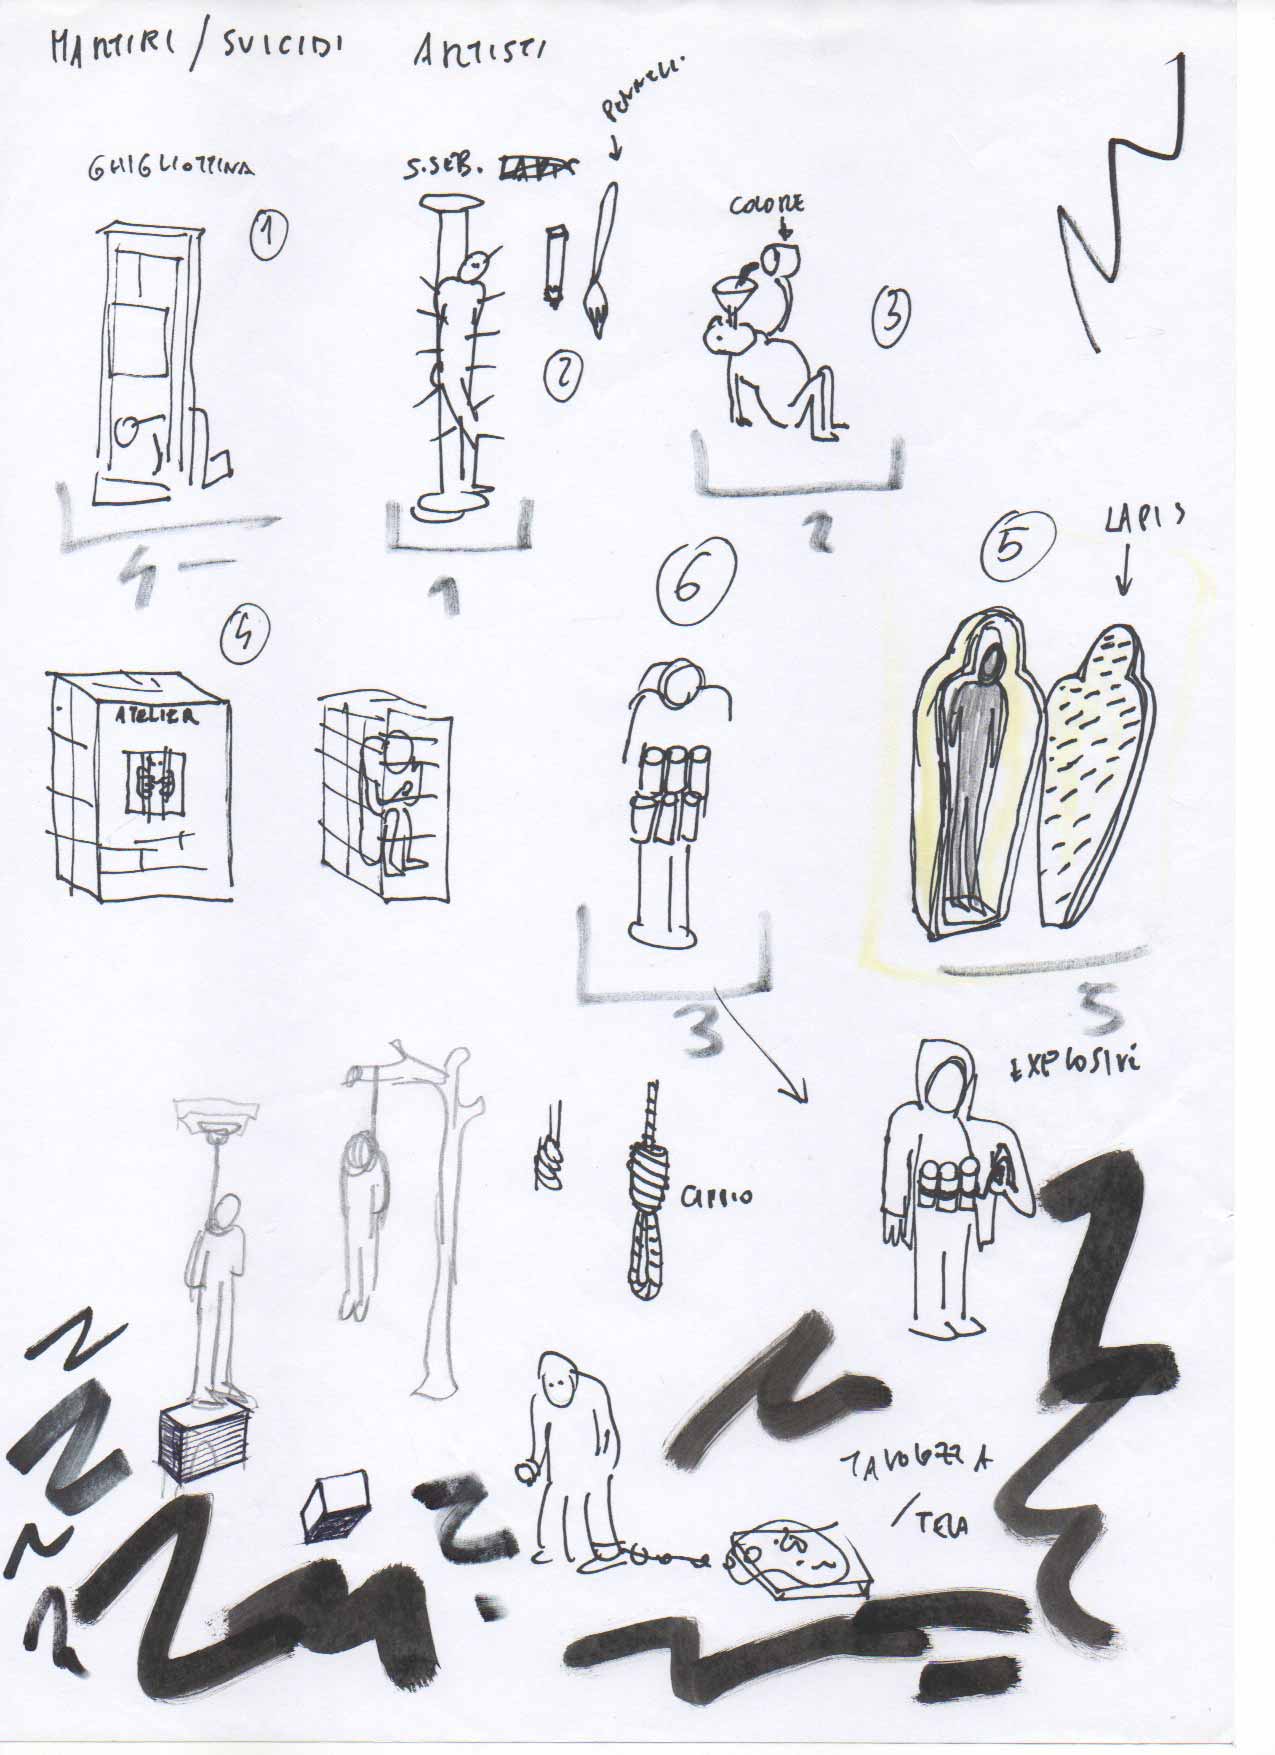 MARTIRI / SUICIDI ARTISTI
PENNELLI
GHIGLIOTTINA
S. SEB.
COLORE
1
2
3
4
1
2
LAPIS
5
6
4
ATELIER
3
5
EXPLOSIVI
CAPPIO
TAVOLOZZA
/ TELA